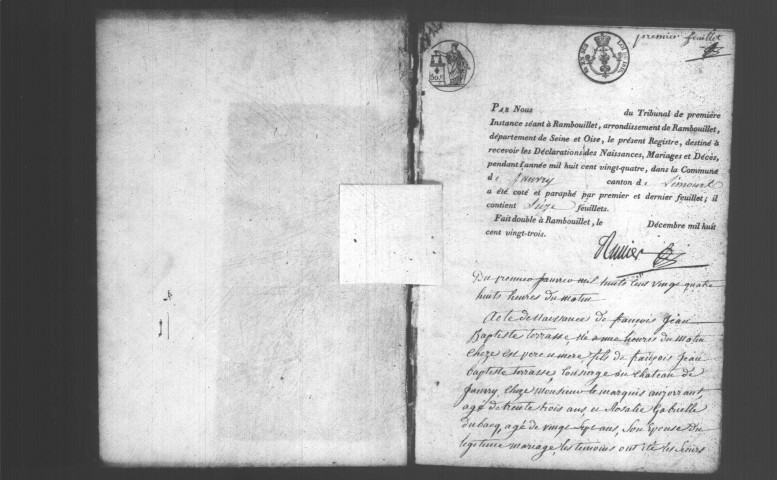 premier feuillet
PAR NOUS du Tribunal de première
Instance séant à Rambouillet, arrondissement de Rambouillet,
département de Seine et Oise, le présent Registre, destiné à
recevoir les Déclarations des Naissances, Mariages et Décès,
pendant l'année mil huit cent vingt-quatre, dans la Commune
de Janvry canton de Limours
a été coté et paraphé par premier et dernier feuillet; il
contient Seize feuillets.
Fait double à Rambouillet, le Décembre mil huit
cent vingt-trois.
Du premier Janvier mil huits cens vingt quatre
huits heures du matin
Acte de Naissance de françois Jean
Baptiste terrasse, né a heures du matin
cheze père et mère, fils de françois Jean
baptiste terrasse, Concierge au chateau de
Janvry, cheze monsieur le marquis
agé de trente trois ans, et Rosalie Gabrielle
dubacq, agé de vingt sept ans, Son Epouse Du
legitime mariage, les temoins ont été les Sieurs